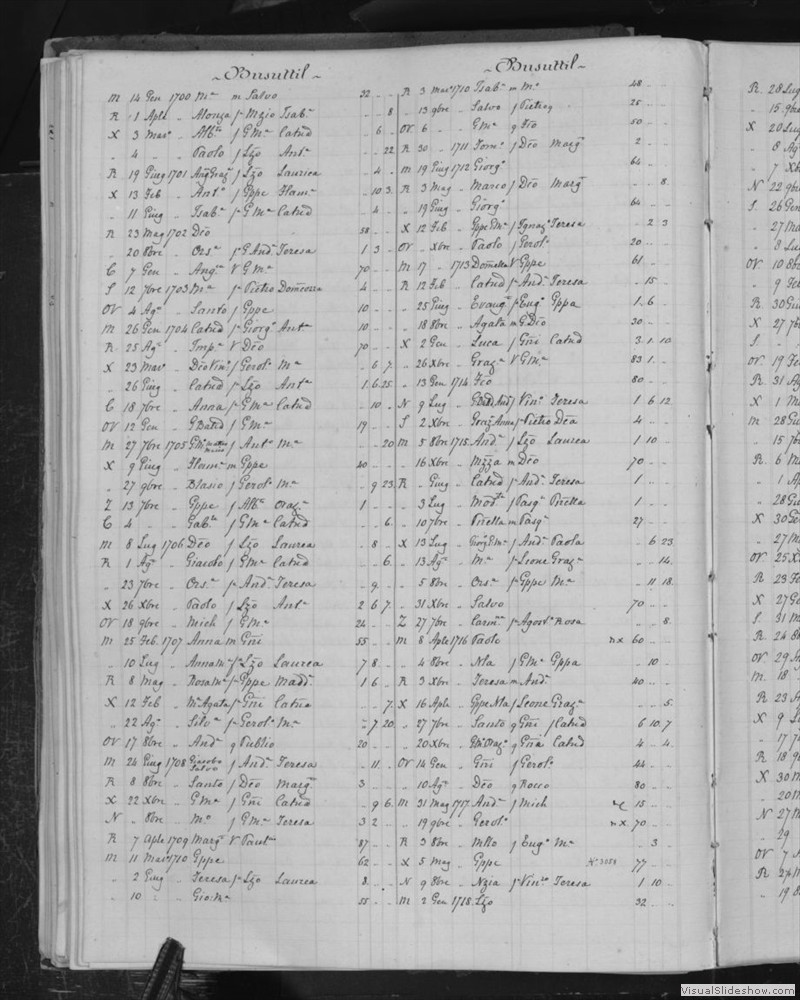 ~Busuttil~
M 14 Gen 1700 Mª m Salvo 32 .. ..
R 1 Aple .. fª Mzio Isabª .. .. 8
X 3 Marº .. f GMª Catnd .. 6 ..
.. 4 .. .. Paolo f Lzo Antª .. .. 22
R 19 Giug 1701 f Lzo Laurea .. 4 ..
X 13 Feb .. Antº f Gppe Flamª .. 10 3
.. 11 Giug .. Isabª fª GMª Catnd .. 4 ..
R 23 Mag 1702 Dẽo 58 .. ..
.. 20 8bre .. Orsª fª G Andª Teresa 1 3 ..
C 7 Gen .. Angª V GMª 70 .. ..
S 12 7bre 1703 Mª fª Pietro Domẽca 4 .. ..
OV 4 Agº .. Santo f Gppe 10 .. ..
M 26 Gen 1704 Catnd fª Giorgº Antª 10 .. ..
R 25 Agº .. Impª V Dẽo 70 .. ..
X 23 Marº .. Dẽo Vinº f Gerolº Mª .. 6 7
.. 26 Giug .. Catnd fª Lzo Antª 1 6 25
C 18 7bre .. Anna fª GMª Catnd .. 10 ..
OV 12 Gen .. GBatta f GMª 19 .. ..
M 27 7bre 1705 GMª f Antº Mª .. .. 20
X 9 Giug .. Flamª m Gppe 40 .. ..
.. 27 9bre .. Blasio f Gerolº Mª .. 9 23
Z 13 7bre .. Gppe f Albº Orazª 1 .. ..
C 4 .. .. Gabˡᵉ f GMª Catnd .. 6 ..
M 8 Lug 1706 Dẽo f Lzo Laurea .. 8 ..
R 1 Agº .. Giacobo f GMª Catnd .. 6 ..
.. 23 7bre .. Orsª fª Andª Teresa .. 9 ..
X 26 Xbre .. Paolo f Lzo Antª 2 6 7
OV 18 9bre .. Mich f GMª 24 .. ..
M 25 Feb. 1707 Anna m Gñi 55 .. ..
.. 10 Lug .. Anna Mª fª Lzo Laurea 7 8 ..
R 8 Mag .. Rosa Mª fª Gppe Maddª 1 6 ..
X 12 Feb .. Mª Agata fª Gñi Catnd .. .. 7
.. 22 Agº .. Silvª fª Gerolº Mª .. 7 20
OV 17 8bre .. Andª q Publio 20 .. ..
M 24 Giug 1708 Giacobo Salvo f Andª Teresa .. 11 ..
R 8 8bre .. Santo f Dẽo Margª 3 .. ..
X 22 Xbre .. GMª f Gñi Catnd .. 9 6
N .. 8bre .. Mº f GMª Teresa 3 2 ..
R 7 Aple 1709 Margª V Paulº 87 .. ..
M 11 Mar 1710 Gppe 62 .. ..
.. 2 Giug .. Teresa fª Lzo Laurea 2 .. ..
.. 10 .. .. Gio:Mª 55 .. ..
~Busuttil~
R 3 Marº 1710 Isabª m Mº 48 .. ..
.. 13 9bre .. Salvo f Pietro 25 .. ..
OV 6 .. .. GMª q Fco 50 .. ..
R 30 .. 1711 f Dẽo Margª 2 .. ..
M 19 Giug 1712 Giorgº 64 .. ..
R 3 Mag .. Marco f Dẽo Margª .. .. 8
.. 19 Giug .. Giorgº 64 .. ..
X 12 Feb .. Gppe GMª f Ignazº Teresa .. 2 3
OV .. Xbre .. Paolo f Gerolº 20 .. ..
M 17 .. 1713 V Gppe 61 .. ..
R 12 Feb .. Catnd fª Andª Teresa .. 15 ..
.. 25 Giug .. Evangª fª Eugº Gppa 1 6 ..
.. 18 8bre .. Agata m G Dẽo 30 .. ..
X 2 Gen .. Luca f Gñi Catnd 3 1 10
.. 26 Xbre .. Grazª V GMª 83 1 ..
.. 13 Gen 1714 Fco 80 .. ..
N 9 Lug .. f Vinº Teresa 1 6 12
S 2 Xbre .. Grazª Anna fª Pietro Dea 4 .. ..
M 5 8bre 1715 Andª f Lzo Laurea 1 10 ..
.. 16 Xbre .. Mzza m Dẽo 70 .. ..
R .. Giug .. Catnd fª Andª Teresa 1 .. ..
.. 3 Lug .. Modˡᵃ f Pasqº Pirella 1 .. ..
.. 10 7bre .. Pirella m Pasqº 27 .. ..
X 13 Lug .. f Andª Paola .. 6 23
.. 13 Agº .. Mª fª Leone Grazª .. .. 14
.. 5 8bre .. Orsª fª Gppe Mª .. 11 18
.. 31 Xbre .. Salvo 70 .. ..
Z 27 7bre .. Carmª fª Agostº Rosa .. .. 8
M 8 Aple 1716 Paolo nx 60 .. ..
.. 4 8bre .. Nla f GMª Gppa .. 10 ..
R 3 Xbre .. Teresa m Andª 40 .. ..
X 16 Aple .. Gppe Nla f Leone Grazª .. .. 5
.. 27 7bre .. Santo q Gñi f Catnd 6 10 7
.. 20 Xbre .. q Gñi Catnd 4 .. 4
OV 14 Gen .. Gñi f Gerolº 44 .. ..
.. 10 Agº .. Dẽo q Rocco 80 .. ..
M 31 Mag 1717 Andª f Mich 15 .. ..
.. 19 9bre .. Gerolº nx 70 .. ..
R 3 8bre .. f Eugº Mª .. 3
X 5 Mag .. Gppe Nº 3058 77 .. ..
N 9 8bre .. Nzia fª Vinzº Teresa 1 10 ..
M 2 Gen 1718 Lzo 32 .. ..
R. 28 Lug
.. 15 9bre
X 20 Lug
.. 8 Ag
.. 7 Xb
N 22 9bre
S. 26 Gen
.. 27 Ma
.. 8 Lu
OV 10 8b
.. 9 Fe
R. 30 Giu
X 27 7b
S. ..
OV 19 Feb
R. 31 A
X 1 Ma
M 28 Giu
.. 15 7b
R. 6 M
.. 1 A
.. 28 Giu
X 30 Ge
.. 27 M
OV 25 X
R 23
X 27 G
S. 31 M
R. 24 8
OV 29 A
M. 18
R 23 A
X 9 L
.. 17 7
R 18 9
X 30 M
.. 20 M
N 27 M
.. 29
OV 7
R. 27 M
.. 19 8
VisualSlideshow.com